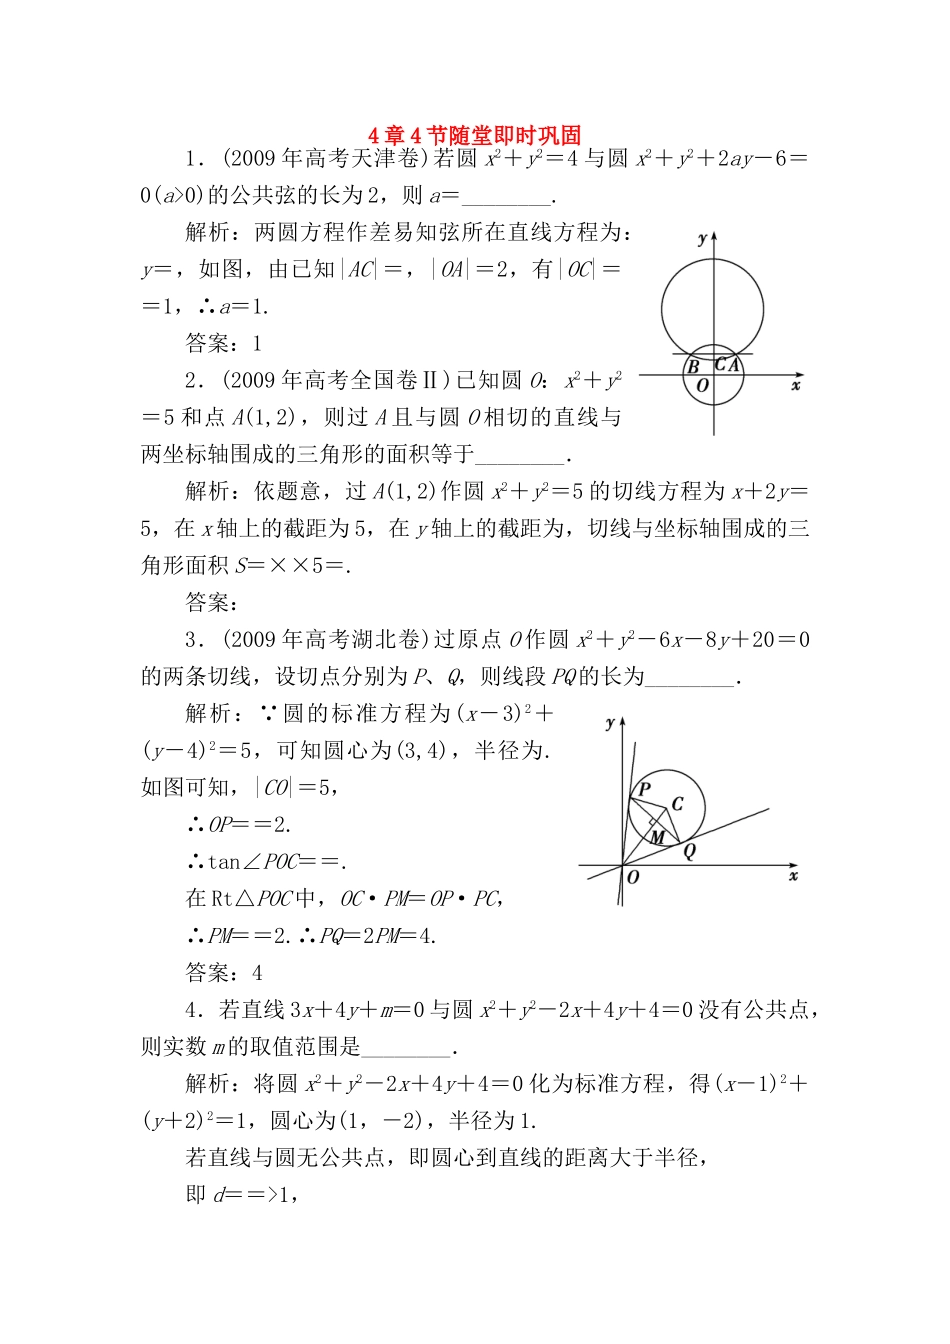 4章4节随堂即时巩固
1．(2009年高考天津卷)若圆x²＋y²＝4与圆x²＋y²＋2ay－6＝
0(a>0)的公共弦的长为2，则a＝________.
解析：两圆方程作差易知弦所在直线方程为：
y＝，如图，由已知|AC|＝，|OA|＝2，有|OC|＝
＝1，∴a＝1.
答案：1
2．(2009年高考全国卷Ⅱ)已知圆O：x²＋y²
＝5和点A(1,2)，则过A且与圆O相切的直线与
两坐标轴围成的三角形的面积等于________．
y
B C A
O x
解析：依题意，过A(1,2)作圆x²＋y²＝5的切线方程为x＋2y＝
5，在x轴上的截距为5，在y轴上的截距为，切线与坐标轴围成的三
角形面积S＝××5＝.
答案：
3．(2009年高考湖北卷)过原点O作圆x²＋y²－6x－8y＋20＝0
的两条切线，设切点分别为P、Q，则线段PQ的长为________．
解析：∵圆的标准方程为(x－3)²＋
(y－4)²＝5，可知圆心为(3,4)，半径为.
如图可知，|CO|＝5，
∴OP＝＝2.
∴tan∠POC＝＝.
在Rt△POC中，OC·PM＝OP·PC，
∴PM＝＝2.∴PQ＝2PM＝4.
y
P
C
M
Q
O
x
答案：4
4．若直线3x＋4y＋m＝0与圆x²＋y²－2x＋4y＋4＝0没有公共点，
则实数m的取值范围是________．
解析：将圆x²＋y²－2x＋4y＋4＝0化为标准方程，得(x－1)²＋
(y＋2)²＝1，圆心为(1，－2)，半径为1.
若直线与圆无公共点，即圆心到直线的距离大于半径，
即d＝＝>1，